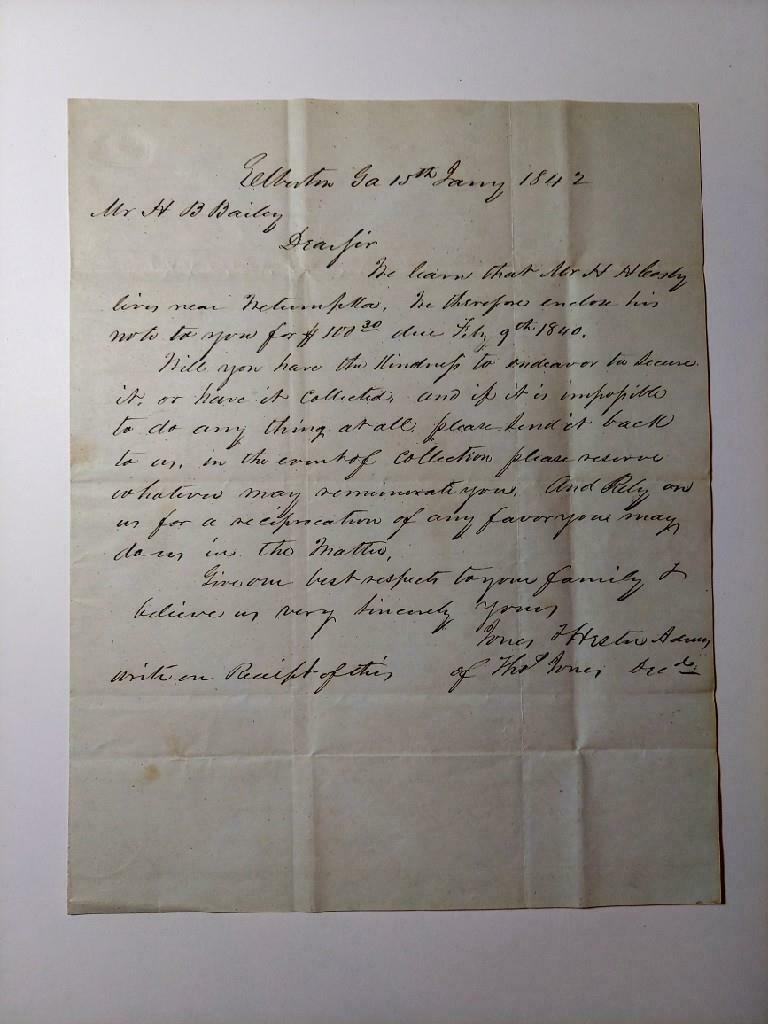 Elberton Ga 15th Jany 1842
Mr H B Bailey
Dear Sir
We learn that Mr H H
lives near Wetumpka. We therefore enclose his
note to you for $ due Feb 9th 1840.
Will you have the Kindness to endeavor to secure
it, or have it collected, and if it is impossible
to do any thing at all, please send it back
to us, in the event of collection please reserve
whatever may remunerate you. And Rely on
us for a reciprocation of any favor you may
do us in the Matter,
Give our best respects to your family &
believe us very sincerely Yours
Jones & Hester Admrs
write on Receipt of this of Thos Jones decd